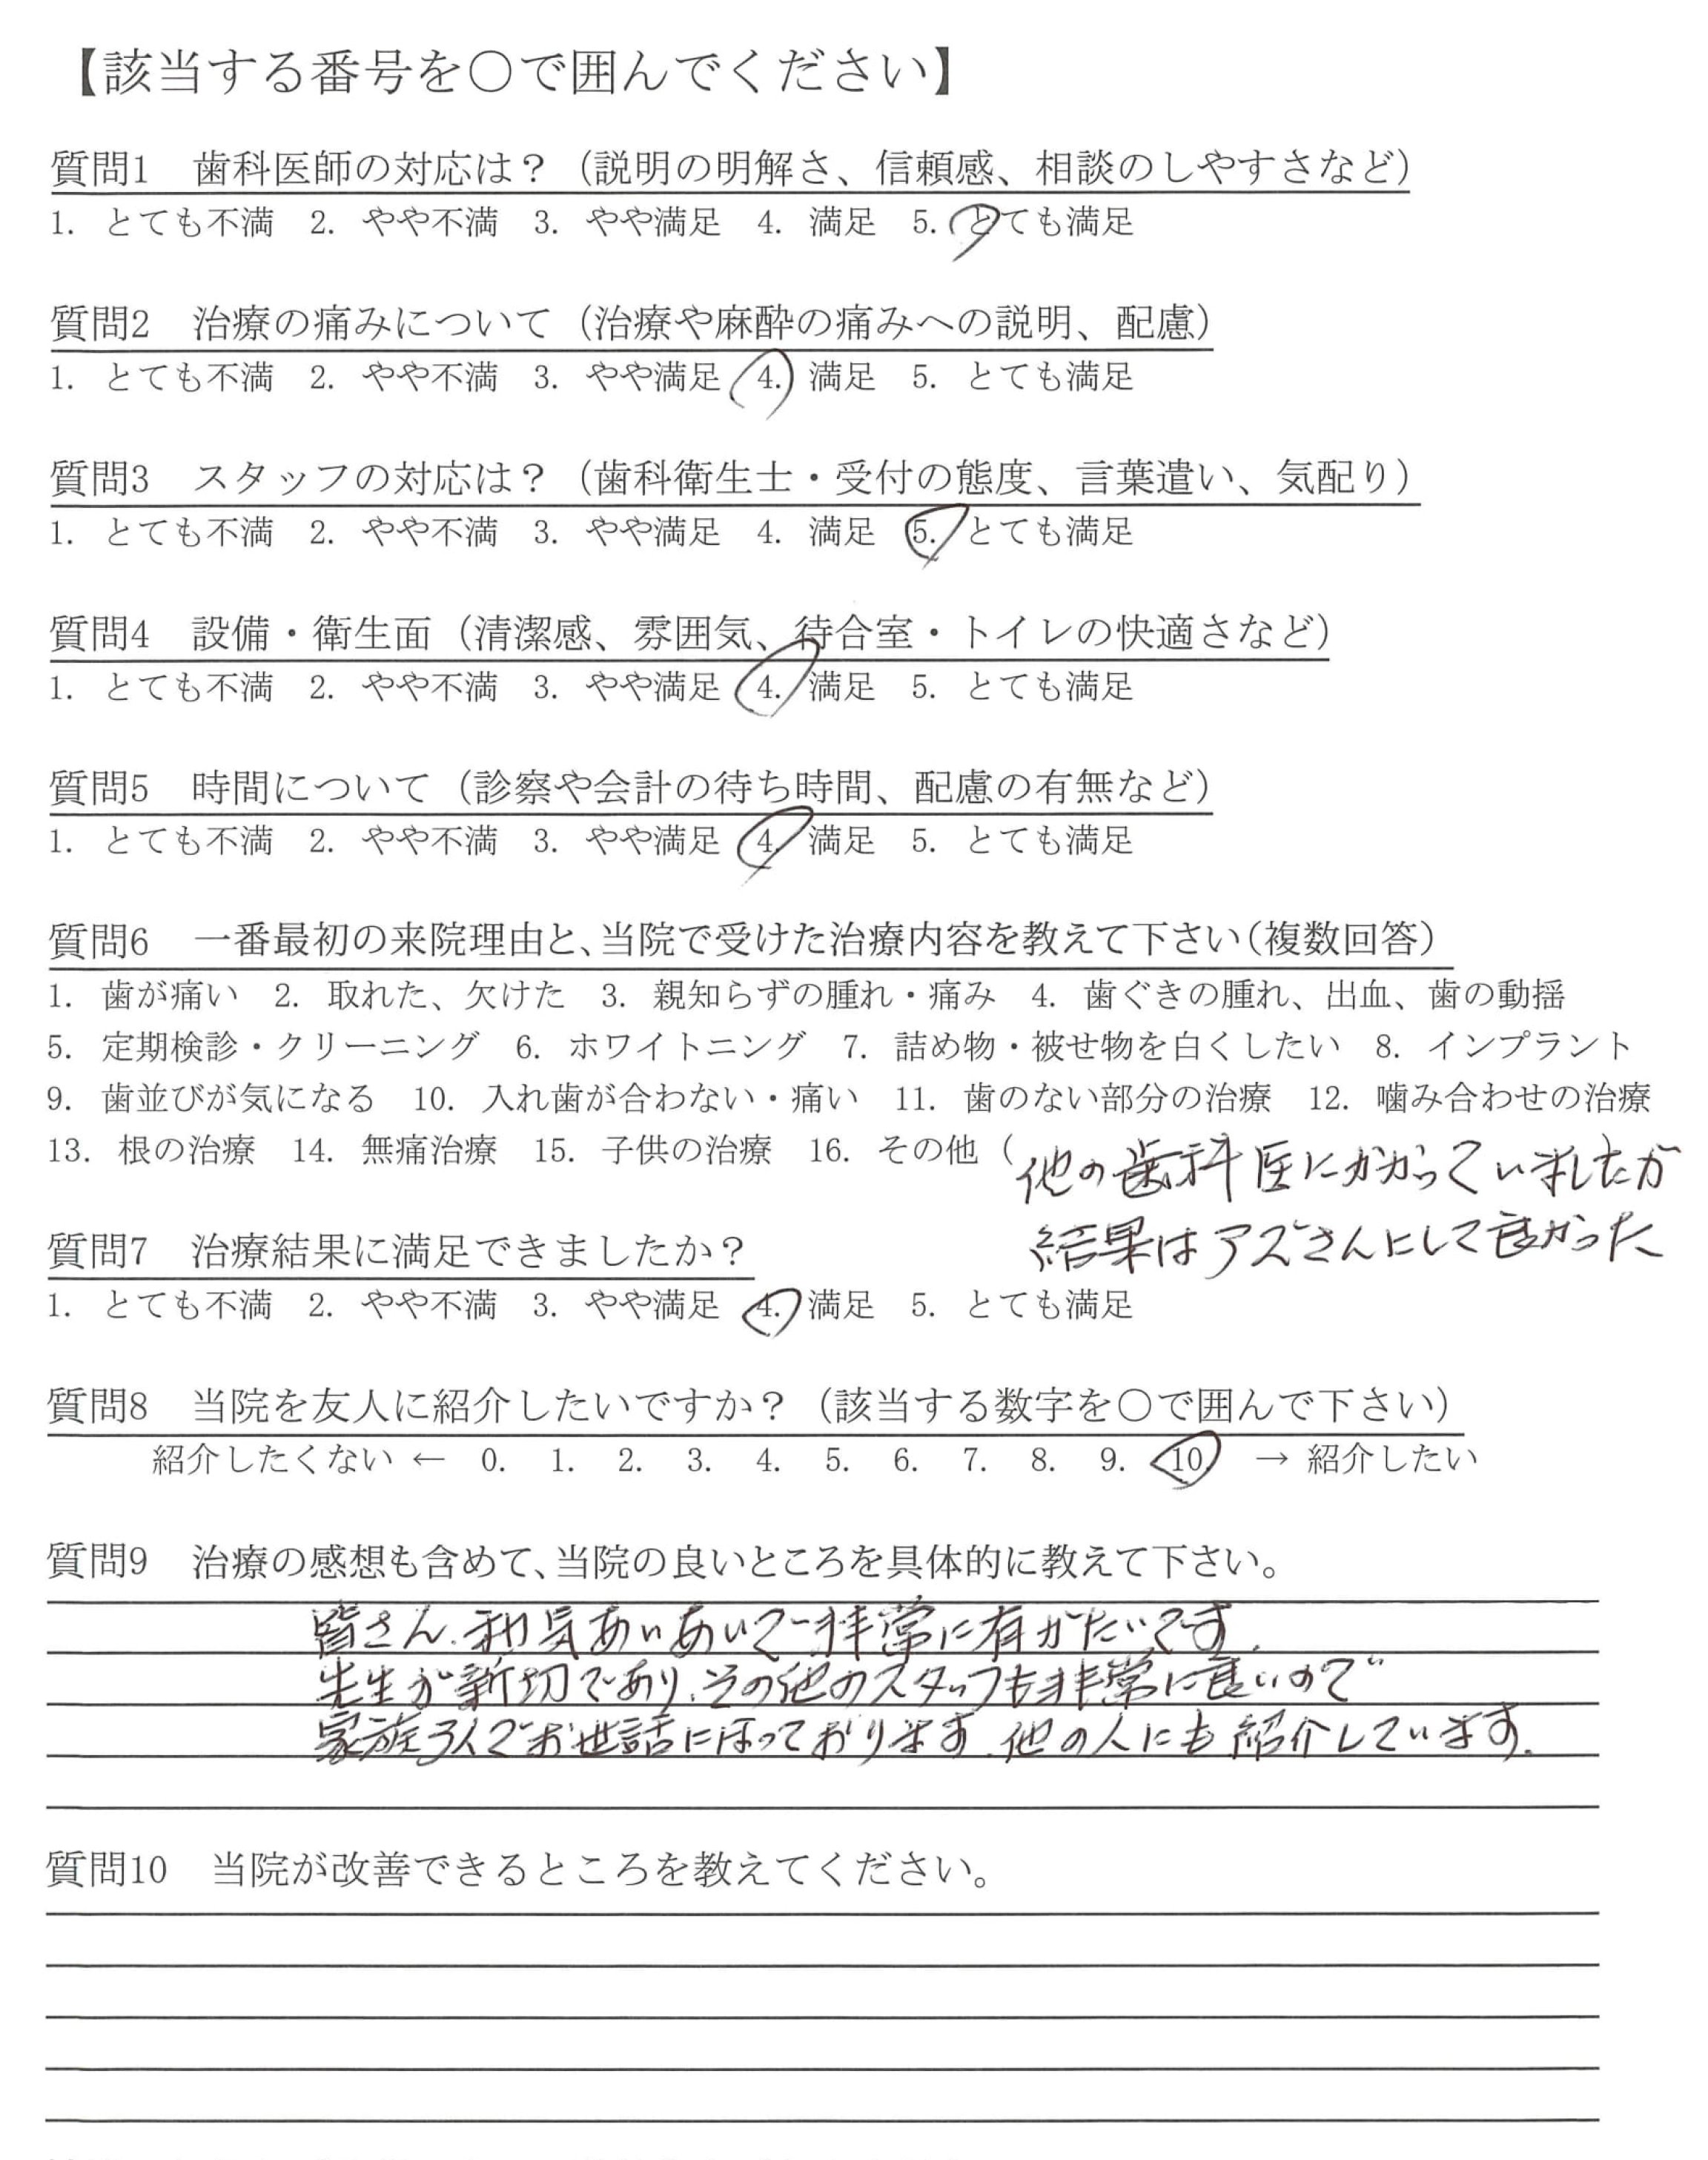 【該当する番号を○で囲んでください】
質問1　歯科医師の対応は？（説明の明解さ、信頼感、相談のしやすさなど）
1. とても不満　2. やや不満　3. やや満足　4. 満足　5. とても満足
質問2　治療の痛みについて（治療や麻酔の痛みへの説明、配慮）
1. とても不満　2. やや不満　3. やや満足　4. 満足　5. とても満足
質問3　スタッフの対応は？（歯科衛生士・受付の態度、言葉遣い、気配り）
1. とても不満　2. やや不満　3. やや満足　4. 満足　5. とても満足
質問4　設備・衛生面（清潔感、雰囲気、待合室・トイレの快適さなど）
1. とても不満　2. やや不満　3. やや満足　4. 満足　5. とても満足
質問5　時間について（診察や会計の待ち時間、配慮の有無など）
1. とても不満　2. やや不満　3. やや満足　4. 満足　5. とても満足
質問6　一番最初の来院理由と、当院で受けた治療内容を教えて下さい（複数回答）
1. 歯が痛い　2. 取れた、欠けた　3. 親知らずの腫れ・痛み　4. 歯ぐきの腫れ、出血、歯の動揺
5. 定期検診・クリーニング　6. ホワイトニング　7. 詰め物・被せ物を白くしたい　8. インプラント
9. 歯並びが気になる　10. 入れ歯が合わない・痛い　11. 歯のない部分の治療　12. 噛み合わせの治療
13. 根の治療　14. 無痛治療　15. 子供の治療　16. その他（他の歯科医にかかっていましたが
結果はアズさんにして良かった
質問7　治療結果に満足できましたか？
1. とても不満　2. やや不満　3. やや満足　4. 満足　5. とても満足
質問8　当院を友人に紹介したいですか？（該当する数字を○で囲んで下さい）
紹介したくない ← 0. 1. 2. 3. 4. 5. 6. 7. 8. 9. 10. → 紹介したい
質問9　治療の感想も含めて、当院の良いところを具体的に教えて下さい。
皆さん、和気あいあいで非常に有がたいです。
先生が新切であり、その他のスタッフも非常に良いので
家族3人でお世話になっております。他の人にも紹介しています。
質問10　当院が改善できるところを教えてください。